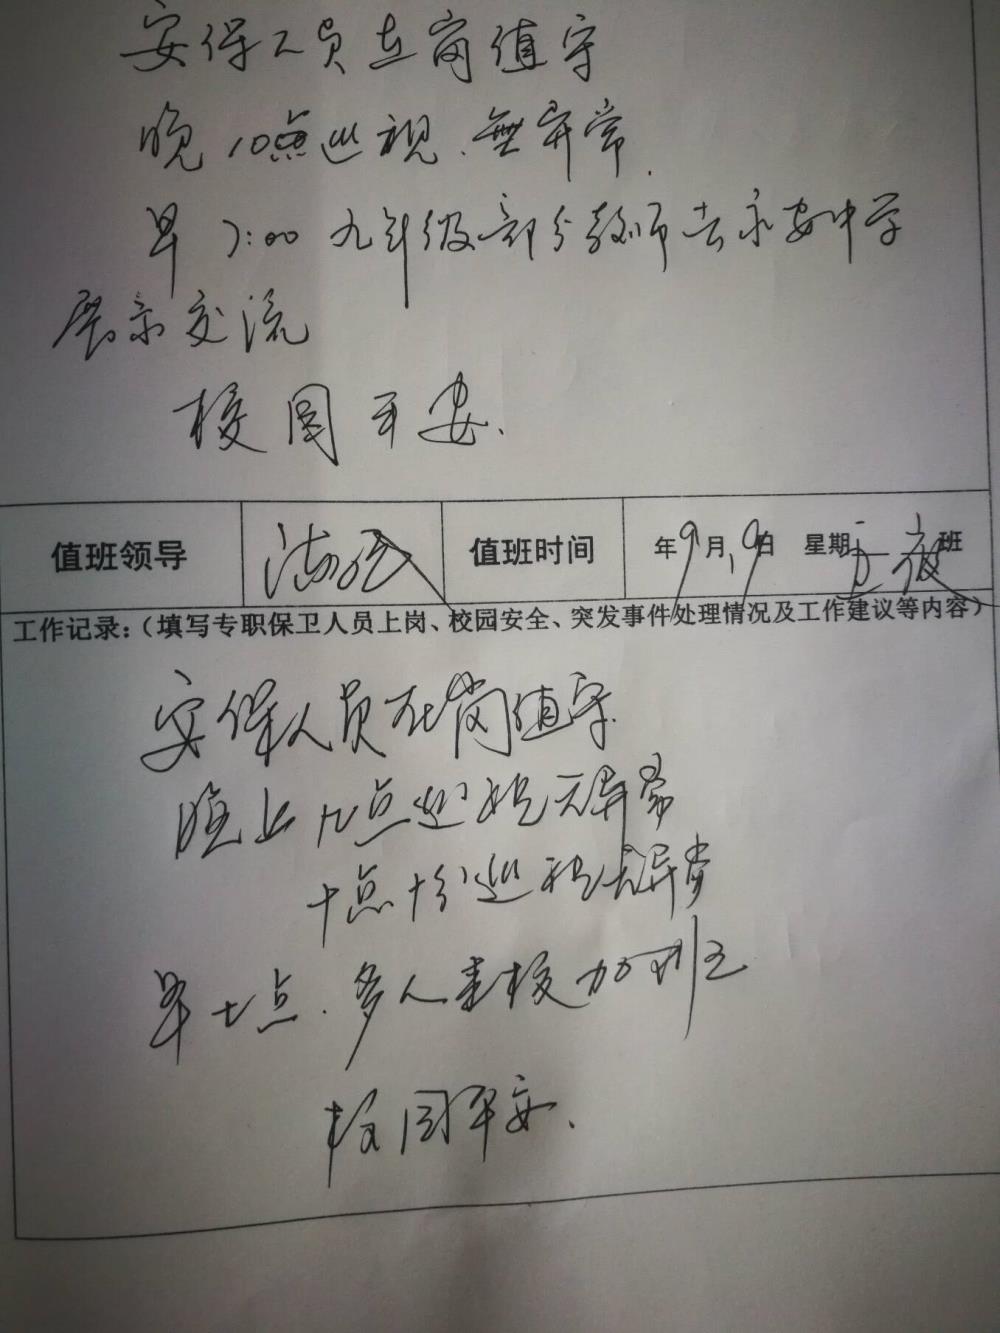 安保人员在岗值守
晚10点巡视.無异常.
早7:00 九年级部分教师去永安中学
展示交流
校园平安.
值班领导 值班时间 年9月19日 星期五夜班
工作记录:(填写专职保卫人员上岗、校园安全、突发事件处理情况及工作建议等内容)
安保人员在岗值守.
晚上九点巡视无异常
十点十分巡视无异常
早七点.多人来校加班
校园平安.